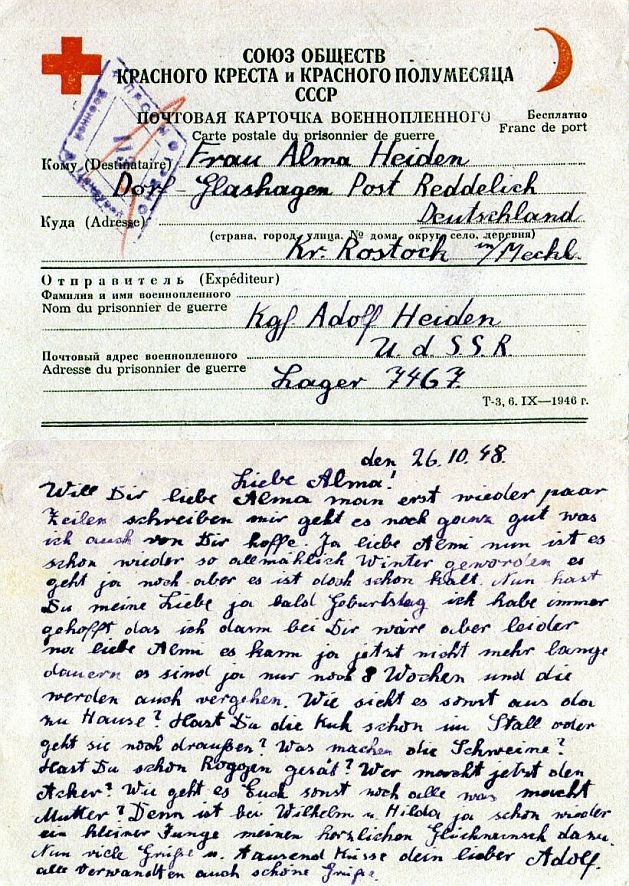 СОЮЗ ОБЩЕСТВ
КРАСНОГО КРЕСТА и КРАСНОГО ПОЛУМЕСЯЦА
СССР
ПОЧТОВАЯ КАРТОЧКА ВОЕННОПЛЕННОГО
Бесплатно
Carte postale du prisonnier de guerre
Franc de port
Кому (Destinataire) Frau Alma Heiden
Dorf-Glashagen Post Reddelich
Куда (Adresse) Deutschland
(страна, город, улица, № дома, округ, село, деревня)
Kr. Rostock in/Mechl.
Отправитель (Expéditeur)
Фамилия и имя военнопленного
Nom du prisonnier de guerre
Kgf Adolf Heiden
Почтовый адрес военнопленного U. d S S R
Adresse du prisonnier de guerre
Lager 7467
Т-3, 6. IX—1946 г.
den 26.10.48.
Liebe Alma!
Will Dir liebe Alma man erst wieder paar
Zeilen schreiben mir geht es noch ganz gut was
ich auch von Dir hoffe. Ja liebe Almi nun ist es
schon wieder so allmählich Winter geworden es
geht ja noch aber es ist doch schon kalt. Nun hast
Du meine Liebe ja bald Geburtstag ich habe immer
gehofft das ich dann bei Dir wäre aber leider
na liebe Almi es kann ja jetzt nicht mehr lange
dauern es sind ja nur noch 8 Wochen und die
werden auch vergehen. Wie sieht es sonst aus da
zu Hause? Hast Du die Kuh schon im Stall oder
geht sie noch draußen? Was machen die Schweine?
Hast Du schon Roggen gesät? Wer macht jetzt den
Acker? Wie geht es Euch sonst noch alle was macht
Mutter? Denn ist bei Wilhelm u. Hilda ja schon wieder
ein kleiner Junge meinen herzlichen Glückwunsch dazu.
Nun viele Grüße u. tausend Küsse dein lieber Adolf.
alle Verwandten auch schöne Grüße.